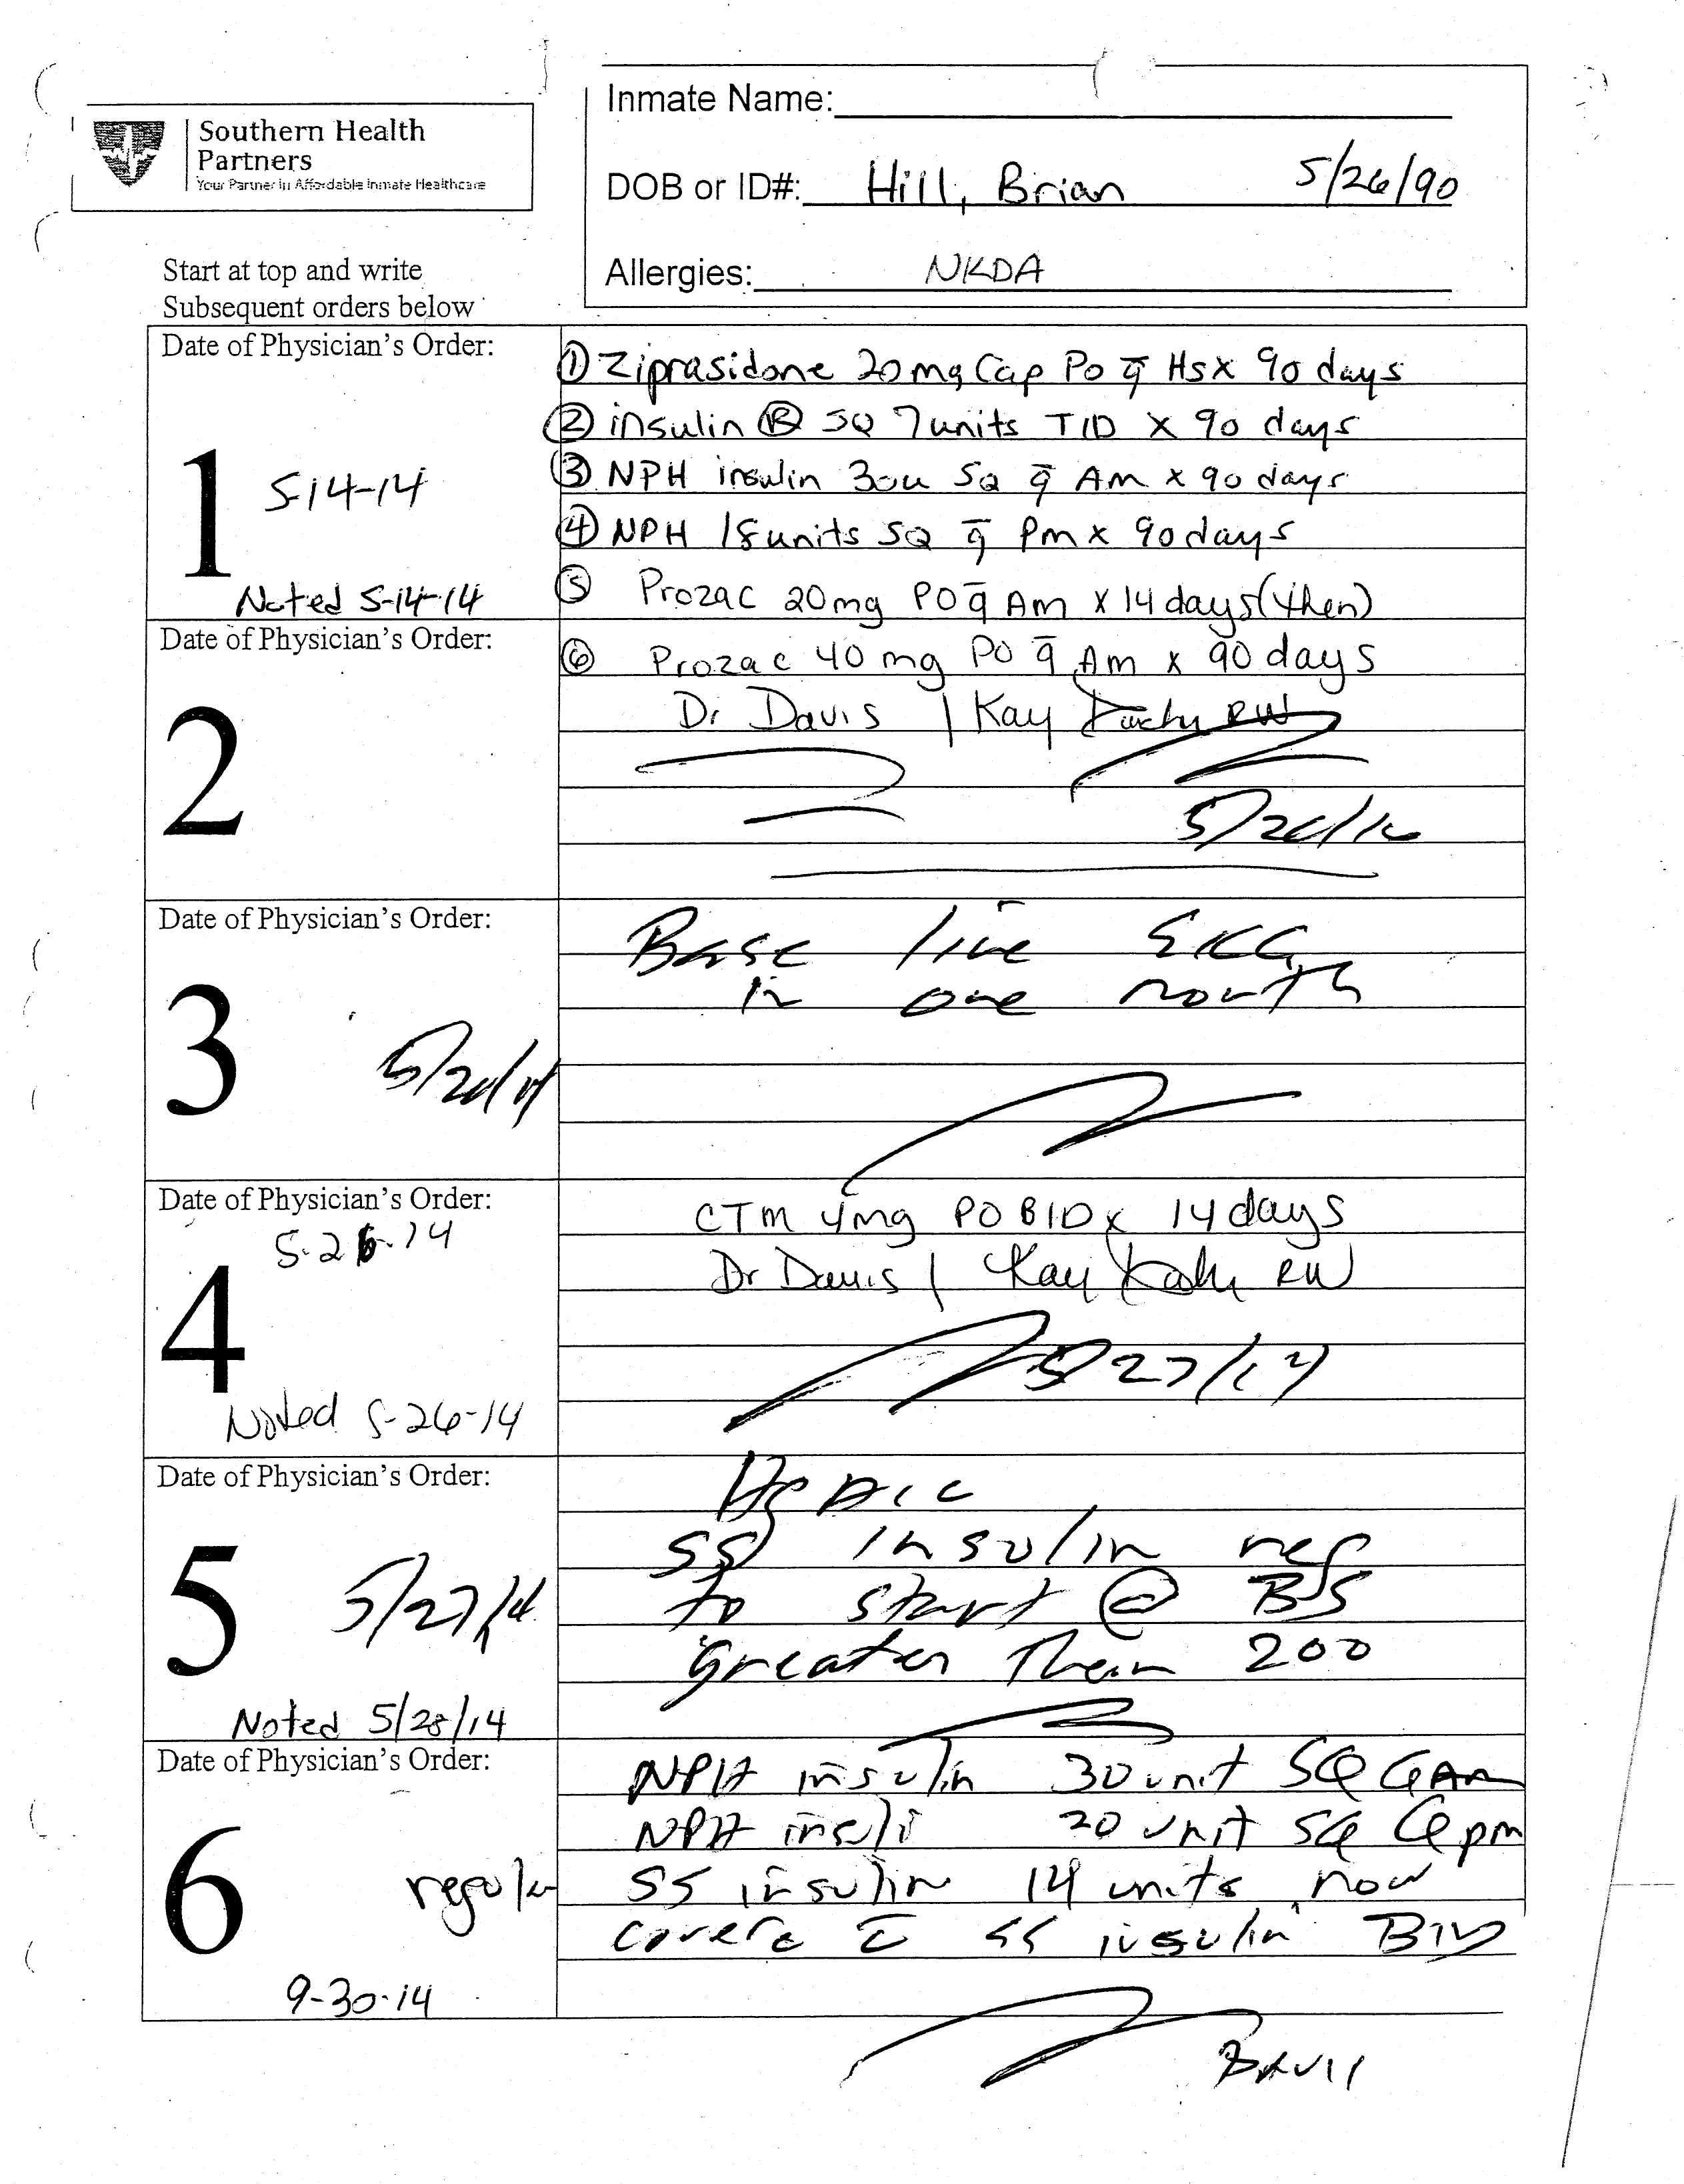 Southern Health
Partners
Your Partner in Affordable Inmate Healthcare
Inmate Name:
DOB or ID#: Hill, Brian 5/26/90
Allergies: NKDA
Start at top and write
Subsequent orders below
Date of Physician's Order:
1
5-14-14
Noted 5-14-14
① Ziprasidone 20mg Cap Po q̄ Hs x 90 days
② insulin Ⓡ SQ 7units TID x 90 days
③ NPH insulin 30u SQ q̄ Am x 90 days
④ NPH 18units SQ q̄ Pm x 90days
⑤ Prozac 20mg PO q̄ Am x 14days (then)
Date of Physician's Order:
2
⑥ Prozac 40 mg PO q̄ Am x 90 days
Dr Davis / Kay RN
Date of Physician's Order:
3
Base line EKG
in one month
Date of Physician's Order:
4
5-26-14
Noted 5-26-14
CTM 4mg PO BID x 14days
Dr Davis / Kay RN
5/27/14
Date of Physician's Order:
5
5/27/14
Noted 5/28/14
SS insulin reg
to start @ BS
greater than 200
Date of Physician's Order:
6
regular
9-30-14
NPH insulin 30 unit SQ QAm
NPH insuli 20 unit SQ Qpm
SS insulin 14 units now
c̄ SS insulin BID
Davis